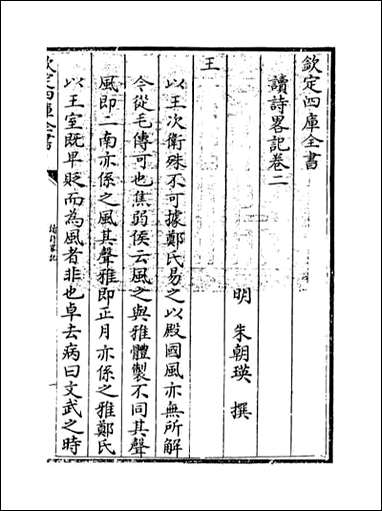 欽定四庫全書
讀詩畧記卷二
明 朱朝瑛 撰
王
以王次衛殊不可據鄭氏易之以殿國風亦無所解
今從毛傳可也焦弱侯云風之與雅體製不同其聲
風即二南亦係之風其聲雅即正月亦係之雅鄭氏
以王室既卑貶而為風者非也卓去病曰文武之時
欽定四庫全書